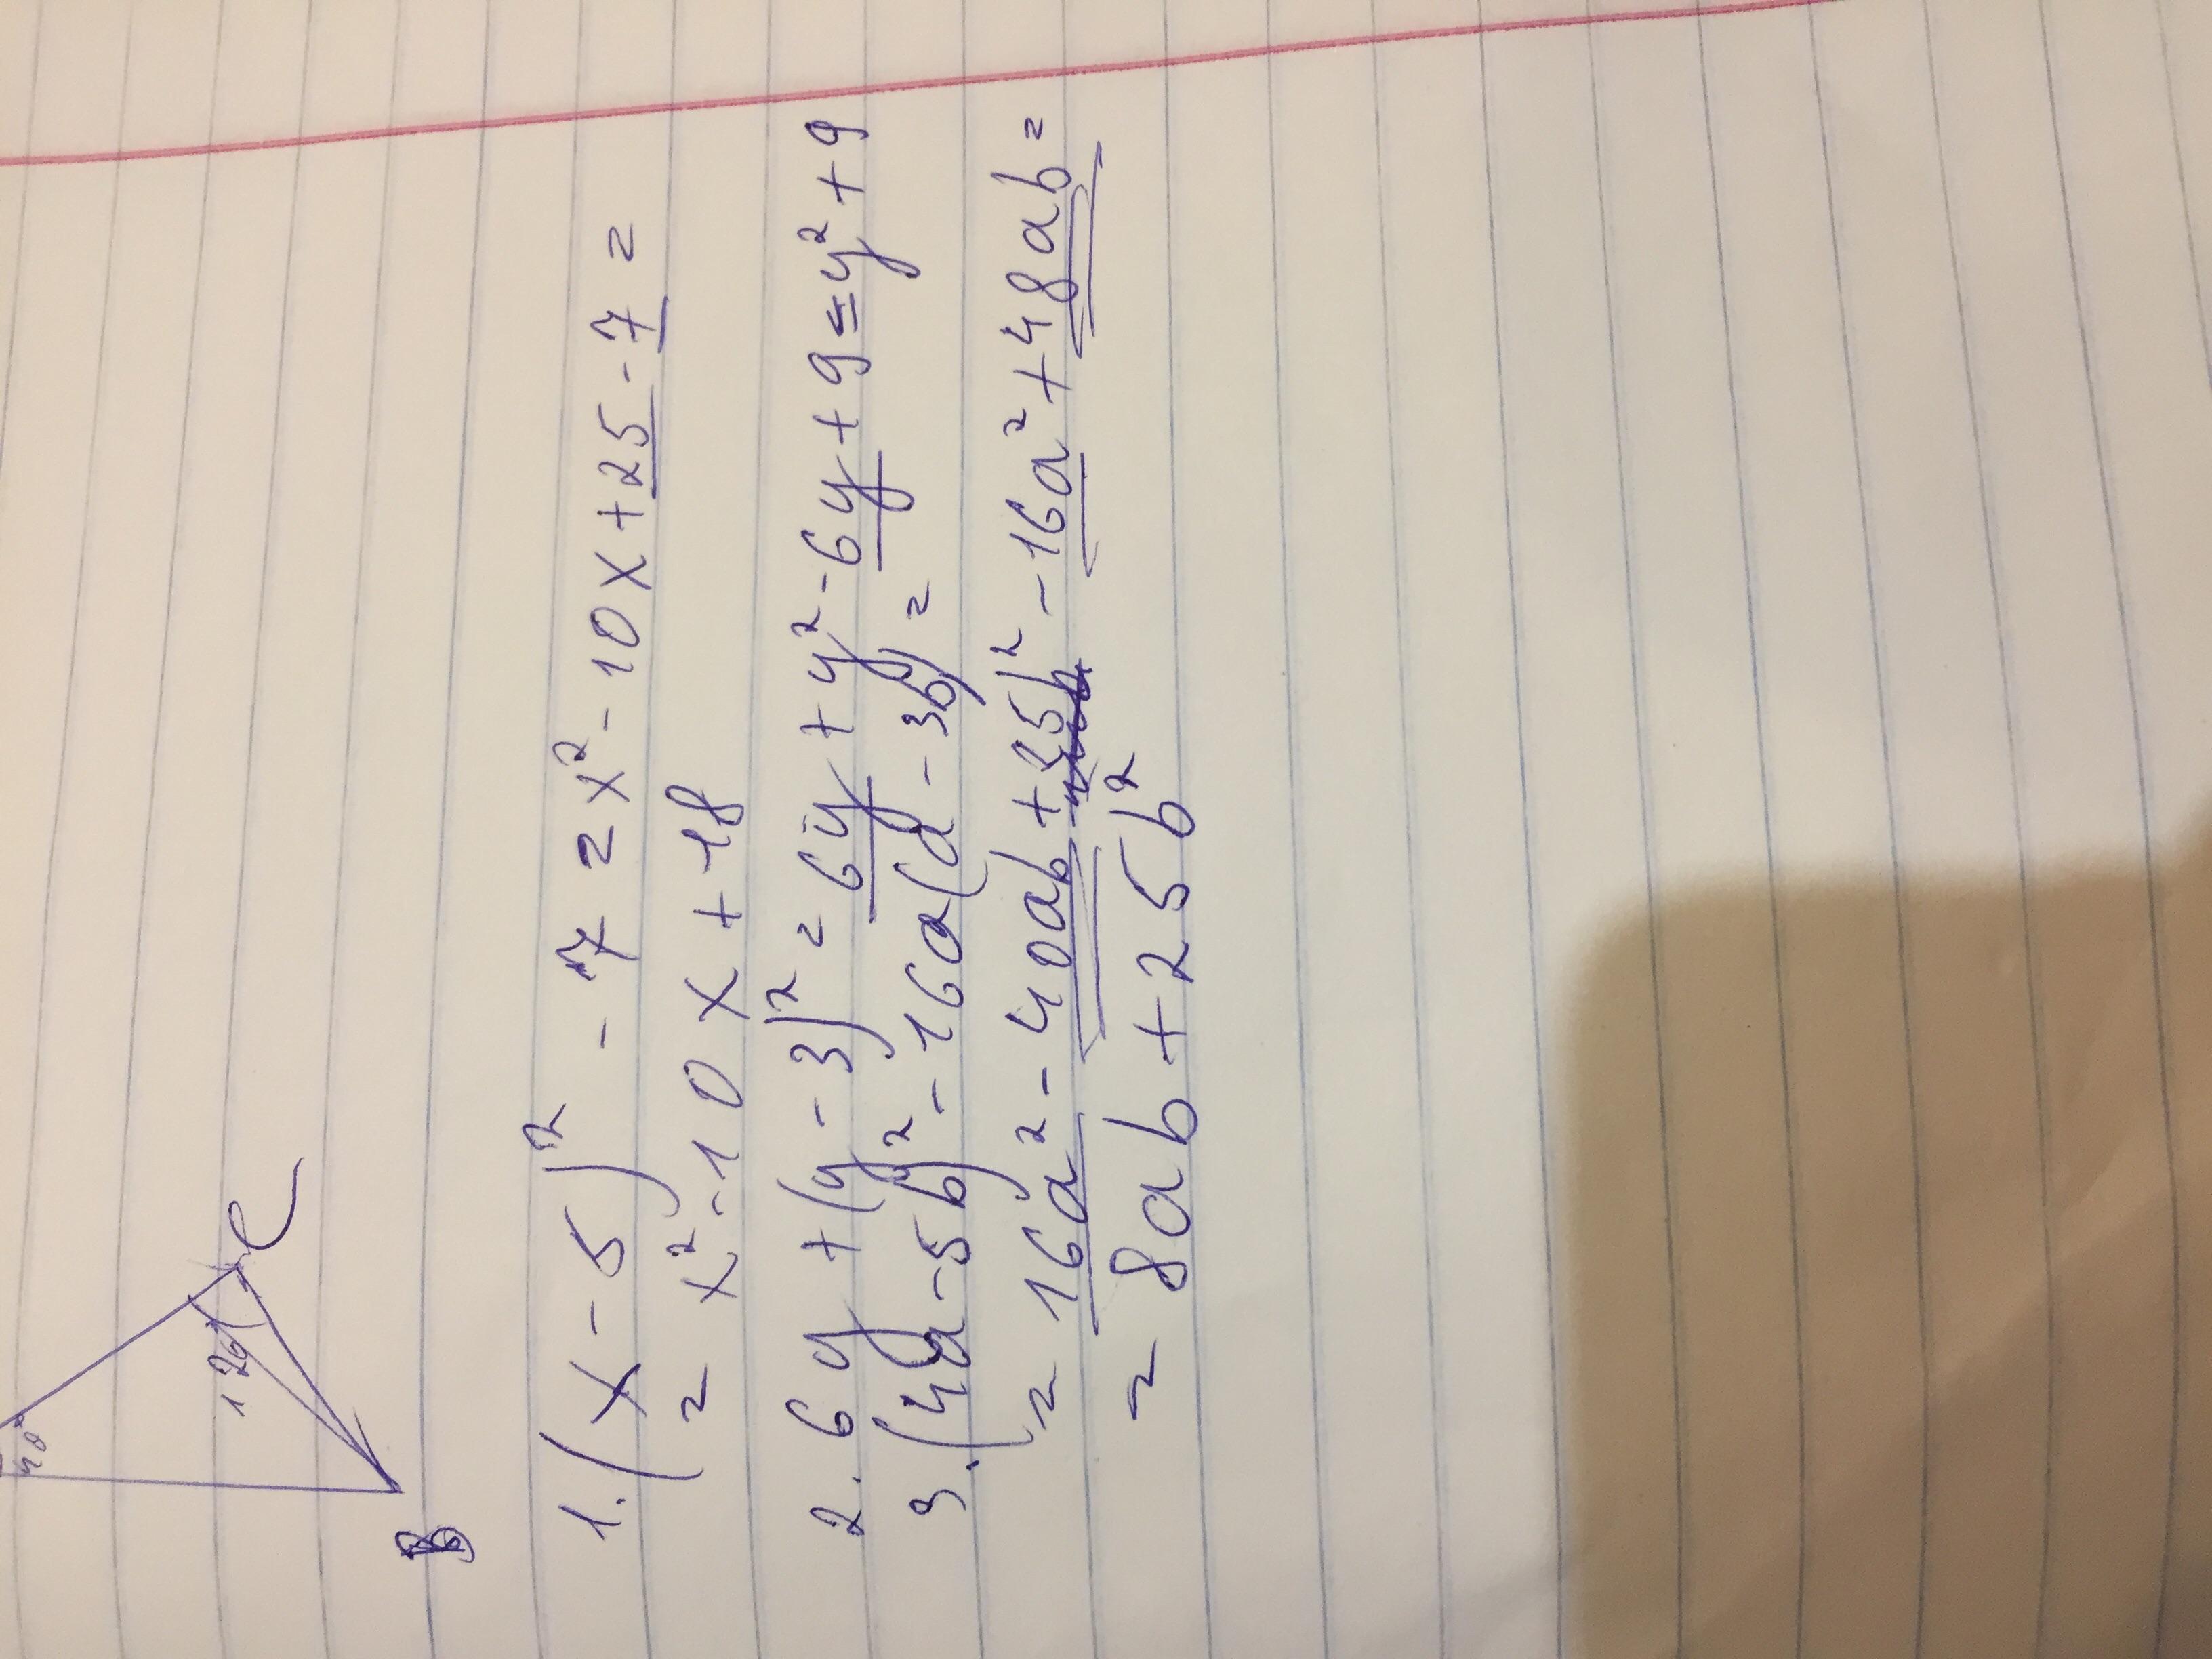 40°
120°
C
B
1. (x - 5)² - 7 = x² - 10x + 25 - 7 =
= x² - 10x + 18
2. 6y + (y - 3)² = 6y + y² - 6y + 9 = y² + 9
3. (4a - 5b)² - 16a(a - 3b) =
= 16a² - 40ab + 25b² - 16a² + 48ab =
= 8ab + 25b²